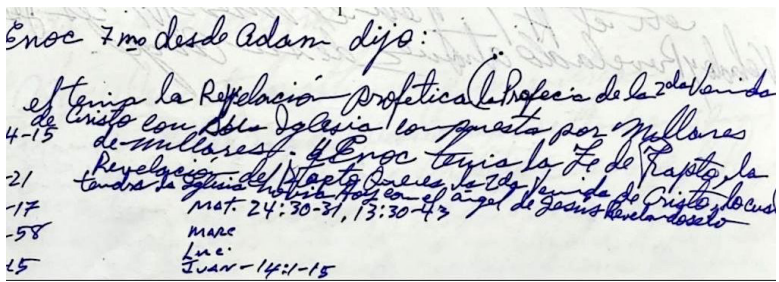 Enoc 7mo desde Adam dijo:
el tenia la Revelación profetica (la Profecia de la 2da Venida
de Cristo con su Iglesia compuesta por Millares
4-15 de millares) y Enoc tenia la Fe de Rapto, la
-21 Revelación del Rapto que es la 2da Venida de Cristo, lo cual
tendra la Iglesia novia hoy con el angel de Jesus Revelandoselo
-17 Mat. 24:30-31, 13:30-43
-58 Marc
Luc.
15 Juan - 14:1-15